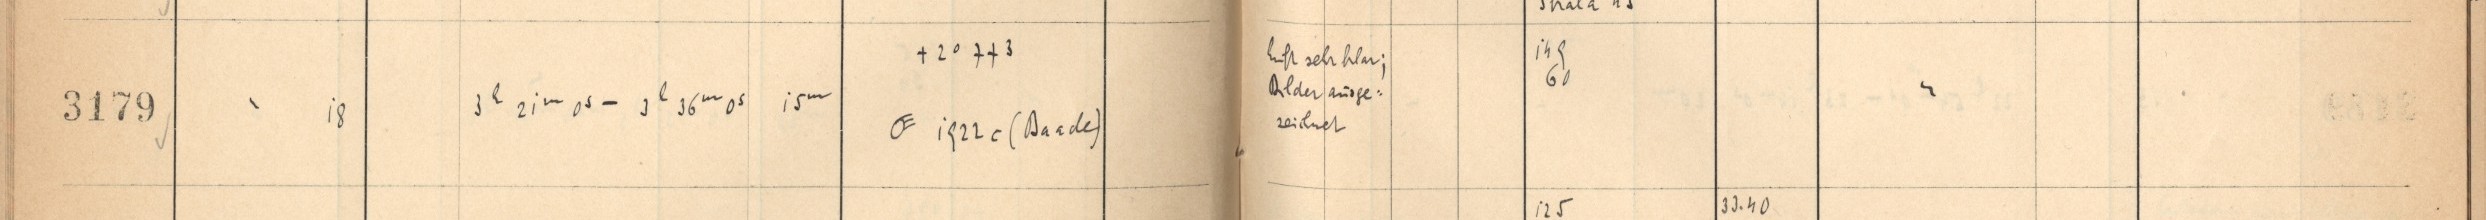 +20 773
3179 18 3h 21m 0s – 3h 36m 0s 15m
☄ 1922 c (Baade)
Luft sehr klar;
Bilder ausge=
zeichnet
149
60
125 33.40